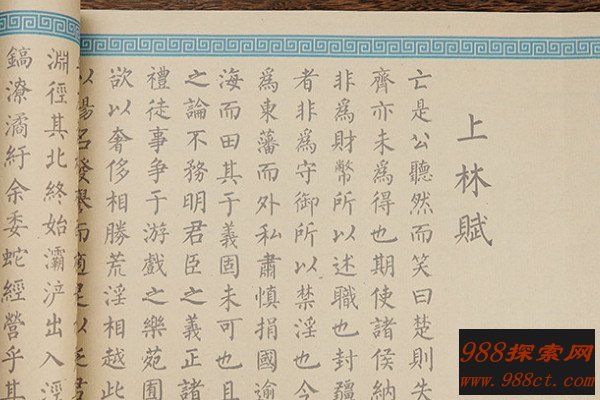 上林賦
亡是公聽然而笑曰楚則失
齊亦未爲得也期使諸侯納
非爲財幣所以述職也封疆
者非爲守御所以禁淫也今
爲東藩而外私肅慎捐國逾
海而田其于義固未可也且
之論不務明君臣之義正諸
禮徒事争于游戲之樂苑囿
欲以奢侈相勝荒淫相越此
以揚名發譽而適足以
淵徑其北終始灞浐出入涇
鎬潦潏紆余委蛇經營乎其
988探索网
www.988ct.com